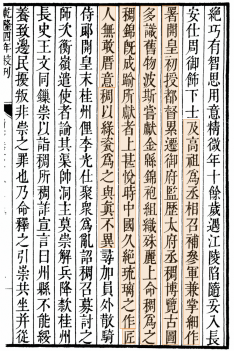 絶巧有智思用意精微年十餘歲遇江陵陷隨妥入長
安仕周御飾下士及高祖爲丞相召補參軍兼掌細作
署開皇初授都督累遷御府監歷太府丞稠博覽古圖
多識舊物波斯嘗獻金緜錦袍組織殊麗上命稠爲之
稠錦既成踰所獻者上甚悅時中國久絶琉璃之作匠
人無敢厝意稠以綠瓷爲之與真不異尋加員外散騎
侍郎開皇末桂州俚李光仕聚衆爲亂詔稠召募討之
師次衡嶺遣使者諭其渠帥洞主莫崇解兵降款桂州
長史王文同鎖崇以詣稠所稠詐宣言曰州縣不能綏
養致邊民擾叛非崇之罪也乃命釋之引崇共坐并從
乾隆四年校刊